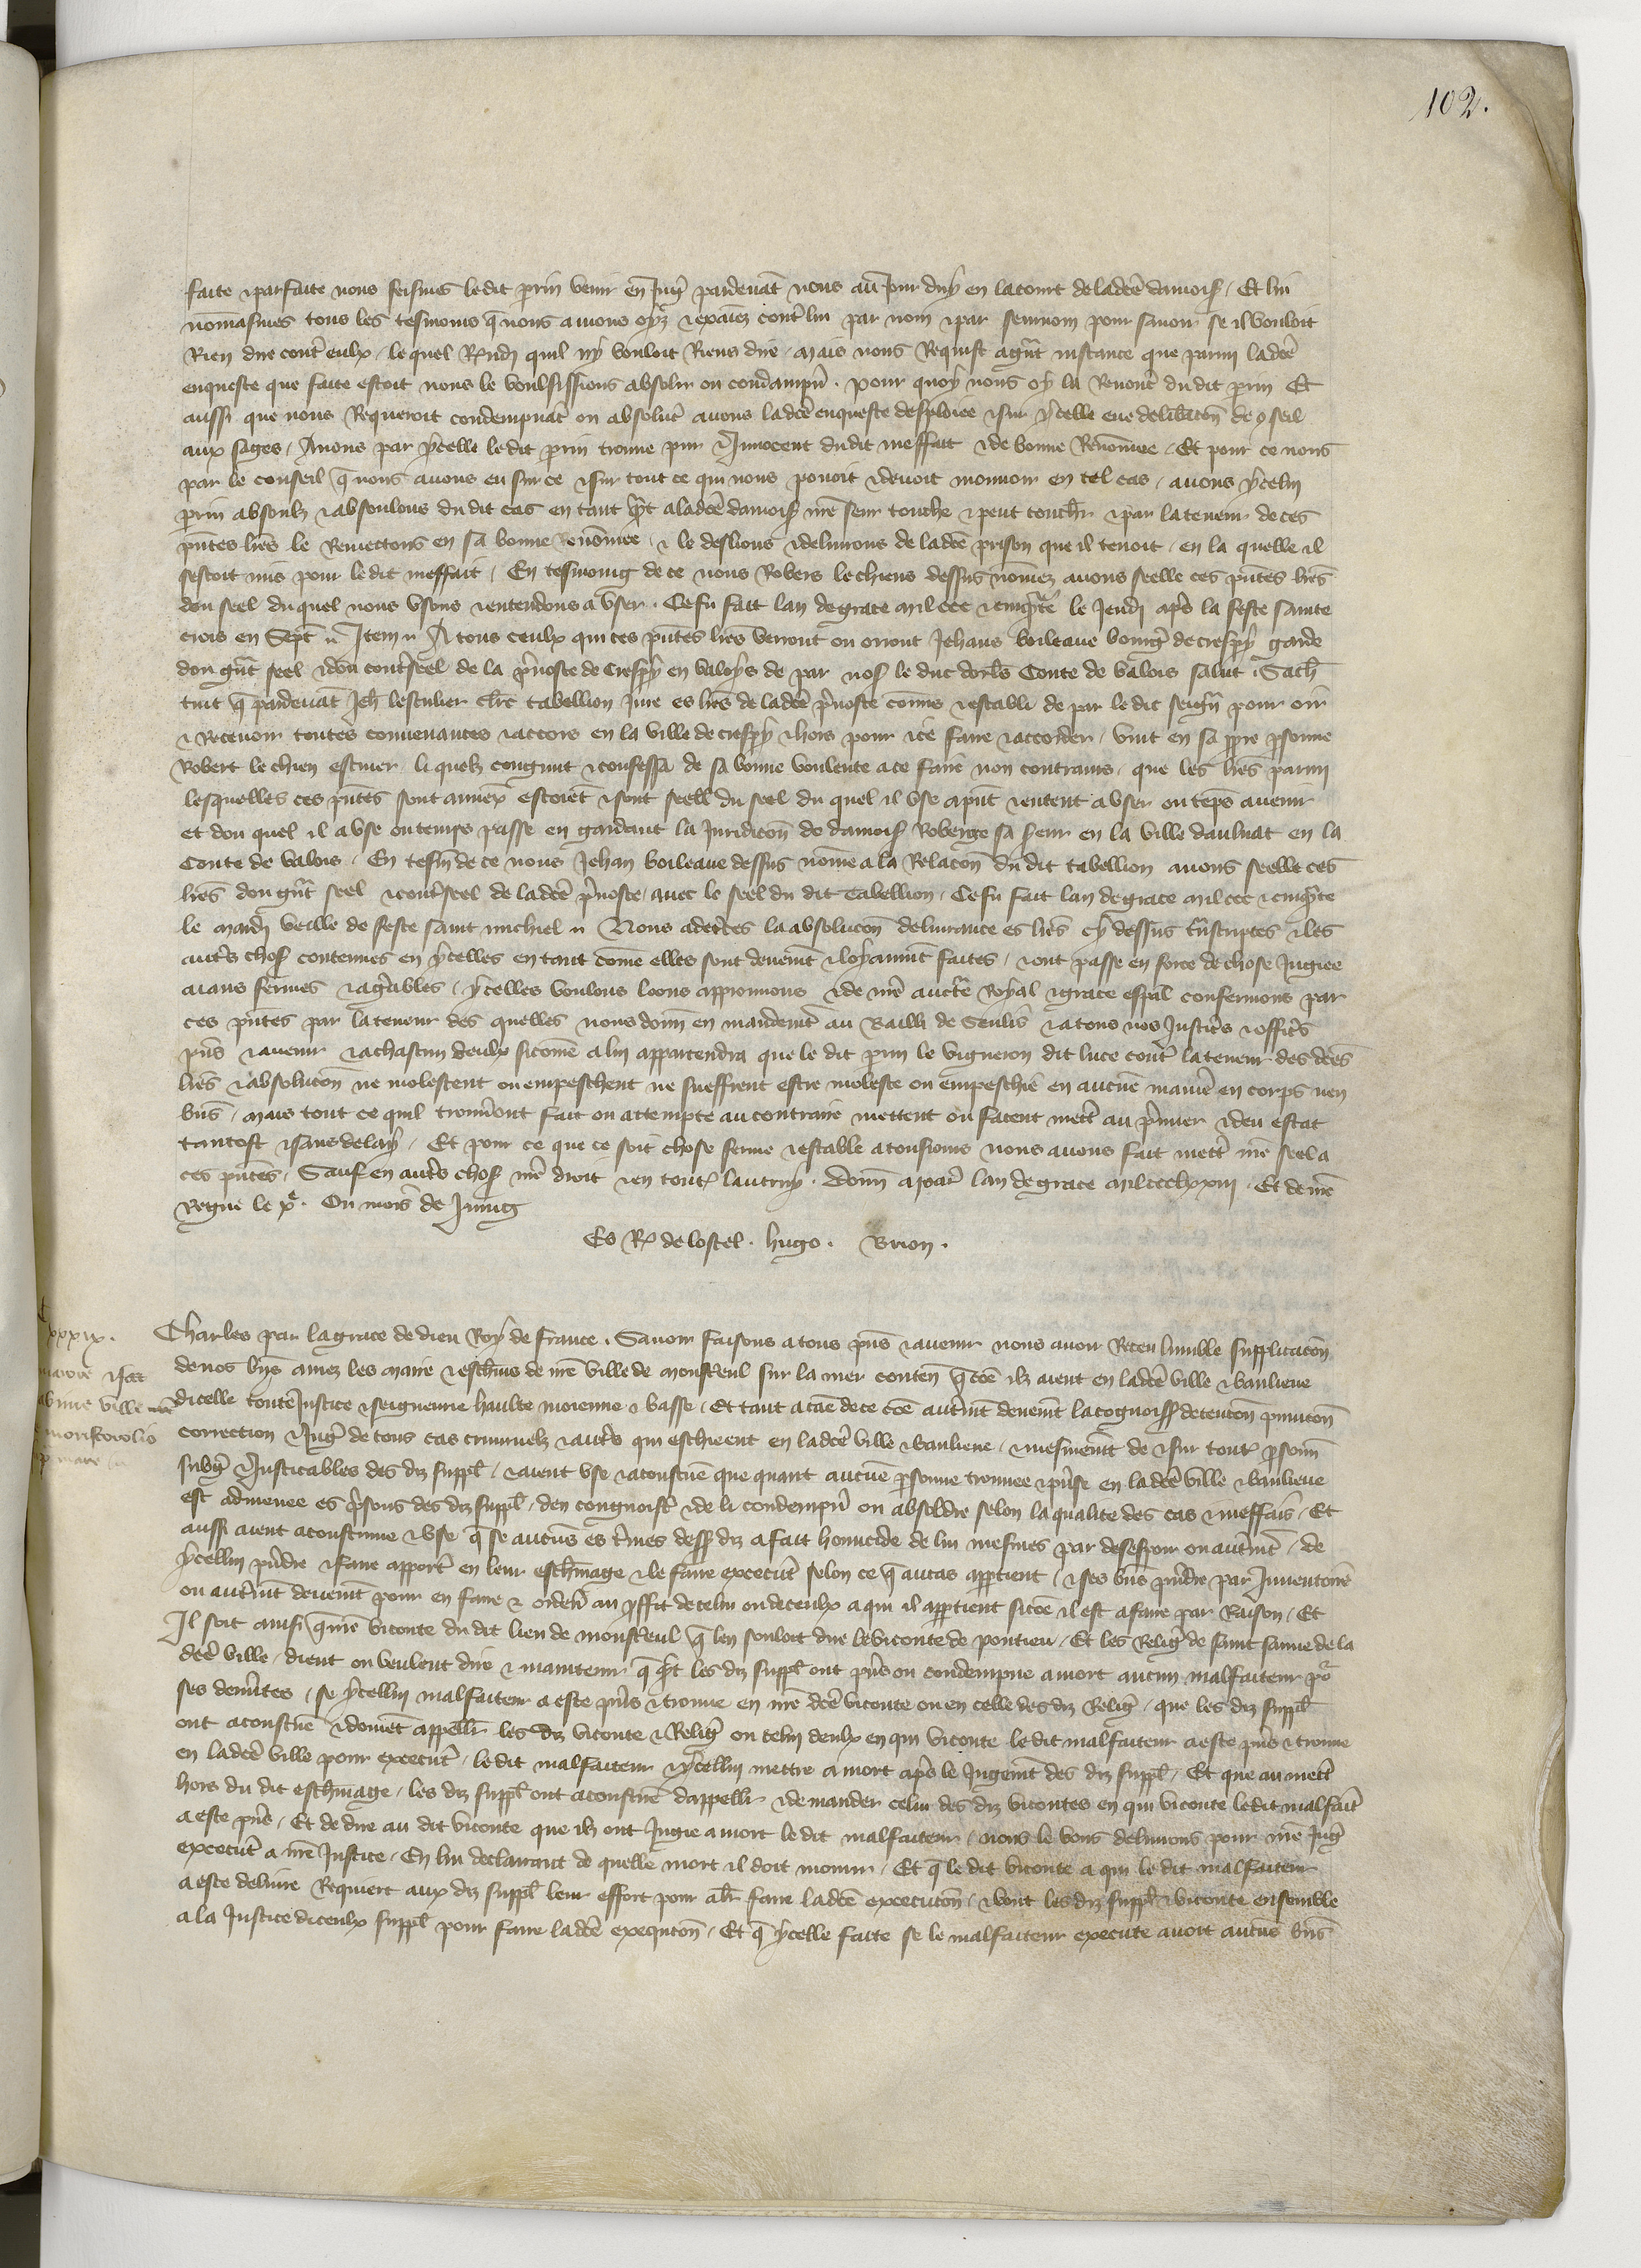 102.
faite et parfaite nous feismes le dit perrin venir en Jug̃ pardevãt nous au jour duy en la court de la dcẽ damois̃. Et lui
nomasmes tous les tesmoins q̃ nous avions oyz et exaiez contr̃ lui par nom et par seurnom pour savoir se il vouloit
Rien dire contr̃ eulx. le quel Rñdj quil ny vouloit Riens dire. mais nous Requist a grãt instance que parmi la dcẽ
enqueste que faite estoit nous le voulsissions absolr̃ ou condampñ. pour quoy nous oy la Renontr̃ du dit perrin Et
aussi que nous Requeroit condempnãt ou absolut̃ avons la dcẽ enqueste desploiee et sur ycelle eue deliƀacõn de 9seil
aux sages. Avons par ycelle le dit perrin trouve pur et Innocent du dit meffait et de bonne Renõmee. Et pour ce nous
par le conseil q̃ nous avons eu sur ce et sur tout ce qui nous povoit et devoit mouvoir en tel cas. avons ycelui
perrin absoulz et absoulons du dit cas en tant q̃t a la dcẽ damois̃ mẽ seur touche et peut touchr̃ et par la teneur de ces
pñtes lrẽs le Remettons en sa bonne Renõmee. et le deslions et delivrons de la dcẽ prison que il tenoit. en la quelle il
sestoit mis pour le dit meffait. En tesmoing de ce nous Robers le chiens dessus nõmez avons seelle ces pñtes lrẽs
dou seel du quel nous usons et entendons a user. Ce fu fait lan de grace mil ccc et cinq̃nte le Jeudj apr̃s la feste sainte
crois en Sept̃ ~ Item ~ A tous ceulx qui ces pñtes lrẽs verront ou orront Jehans boileaue bourg̃ de crespy garde
dou grãt seel et dou contr̃seel de la p̃voste de Crespy en Valoys de par nos̃ le duc dorl̃s Conte de Valois salut. Sach̃
tuit q̃ pardevãt Jeh̃ lescuier clrẽ tabellion Jure es lrẽs de la dcẽ p̃voste cõmis et establi de par le dit seign̄r pour oir
et Recevoir toutes convenances et accors en la ville de crespy et hors pour ice faire et accorder. vint en sa ppre psonne
Robert le chien escuier. li quelz congnut et confessa de sa bonne voulente a ce faire non contrains. que les lrẽs parmi
lesquelles ces pñtes sont annex̃ estoiẽt et sont seell̃ du seel du quel il use apñt et entent a user ou tẽps avenir
et dou quel il a use ou temps passe en gardant la Juridicõn de damois̃ Roberge sa seur en la ville dauluat en la
Conte de Valois. En tesm̃ de ce nous Jehan boileaue dessus nõme a la Relacõn du dit tabellion avons seelle ces
lrẽs dou grãt seel et contr̃seel de la dcẽ p̃voste. avec le seel du dit tabellion. Ce fu fait lan de grace mil ccc et cinq̃nte
le mardj veille de feste saint michiel ~ Nous adecertes la absolucõn delivrance es lrẽs cy dessus tr̃nscriptes et les
autrẽs chos̃ contenues en ycelles en tant cõme elles sont deuemt̃ et loyaumt̃ faites. et ont passe en force de chose Jugiee
aians fermes et agr̃ables. ycelles voulons loons approuvons et de nrẽ auctr̃e Royal et grace esp̃al confermons par
ces pñtes par la teneur des quelles nous donn̄ en mandemt̃ au Bailli de Senlis et a tous nos Justic̃s et offic̃s
pñs et avenir et a chascun deulx sicõme a lui appartendra que le dit perrin le vigneron dit luce contr̃ la teneur des dcẽs
lrẽs et absolucõn ne molestent ou empeschent ne sueffrent estre moleste ou empeschie en aucune manier̃ en corps nen
biẽs. mais tout ce quil trouvr̃ont fait ou attempte au contraire mettent ou facent mettr̃ au p̃mier et deu estat
tantost et sans delay. Et pour ce que ce soit chose ferme et estable a tousiours nous avons fait mettr̃ nrẽ seel a
ces pñtes. Sauf en autrẽs chos̃ nrẽ droit et en tout̃ lautruy. Donn̄ a par̃ lan de grace mil ccclxxiij. Et de nrẽ
Regne le x͛. Ou mois de Juing
Es R͛ de lostel. hugo. Brion.
xxxix.
maiore et scãb
ville
monsterolio
mare
Charles par la grace de dieu Roy de france. Savoir faisons a tous pñs et avenir nous avoir Receu lumble supplicacõn
de nos biẽs amez les maire et eschev̄ns de nrẽ ville de monstreul sur la mer conten̄ q̃ cõe ilz aient en la dcẽ ville et banlieue
dicelle toute Justice et seigneurie haulte moienne et basse. Et tant a cãe de ce cõe autr̃mt̃ deuemt̃ la cognoiss̃ detencõn pnnicõn
correction et Jug̃ de tous cas criminelz et autrẽs qui eschieent en la dcẽ ville et banlieue. et mesmemt̃ de et sur tout̃ psonn̄
subg̃ et Justicables des diz suppl̃. et aient use et acoustume que quant aucune psonne trouvee et pr̃se en la dcẽ ville et banlieue
est admenee es p̃sons des diz suppl̃. den congnoistr̃ et de li condempñ ou absoldre selon la qualite des cas et meffais. Et
aussi aient acoustume et use q̃ se aucuns es t̃mes dess̃ diz a fait homicide de lui mesmes par desespoir ou autr̃mt̃. de
ycellui pr̃ndre et faire apport̃ en leur eschevinage et le faire executer̃ selon ce q̃ au cas appartient. et ses biẽs pr̃ndre par Inventoire
ou autr̃mt̃ deuemt̃ pour en faire et orden̄ au pffit de celui ou de ceulx a qui il appartient sicõe il est a faire par Raison. Et
Il soit ainsi q̃ nrẽ viconte du dit lieu de monstreul q̃ len souloit dire le viconte de pontieu. Et les Relig̃ de saint sauve de la
dcẽ ville. dient ou veulent dire et maintenir q̃ q̃t les diz suppl̃ ont pr̃s ou condempne a mort aucun malfaiteur p͛
ses demr̃tes. se ycellui malfaiteur a este pr̃s et trouve en nrẽ dcẽ viconte ou en celle des diz Relig̃. que les diz suppl̃
ont acoustume et doivẽt appellr̃ les diz viconte et Relig̃ ou celui deulx en qui viconte le dit malfaiteur a este pr̃s et trouve
en la dcẽ ville pour executer̃. le dit malfaiteur et ycellui mettre a mort apr̃s le Jugemt̃ des diz suppl̃. Et que au mettr̃
hors du dit eschevinage. les diz suppl̃ ont acoustume dappellr̃ et demander celui des diz vicontes en qui viconte le dit malfaitr̃
a este pr̃s. Et de dire au dit viconte que ilz ont Jugie a mort le dit malfaiteur. nous le vous delivrons pour nrẽ Jug̃
executer̃ a nrẽ Justice. En lui declairant de quelle mort il doit mourir. Et q̃ le dit viconte a qui le dit malfaiteur
a este delivre Requiert aux diz suppl̃ leur effort pour alr̃ faire la dcẽ execucõn. et vont les diz suppl̃ et viconte ensemble
a la Justice diceulx suppl̃ pour faire la dcẽ exequcõn. Et q̃ ycelle faite se le malfaiteur execute avoit aucuns biẽs